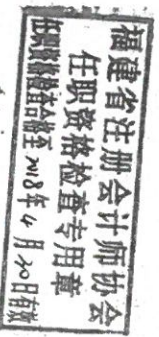 福建省注册会计师协会
任职资格检查专用章
任职资格检查合格至2018年4月20日有效